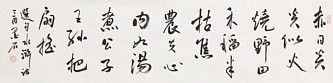 赤日炎
炎似火
燒野田
禾稻半
枯焦
農夫心
内如湯
煮公子
王孫把
扇搖